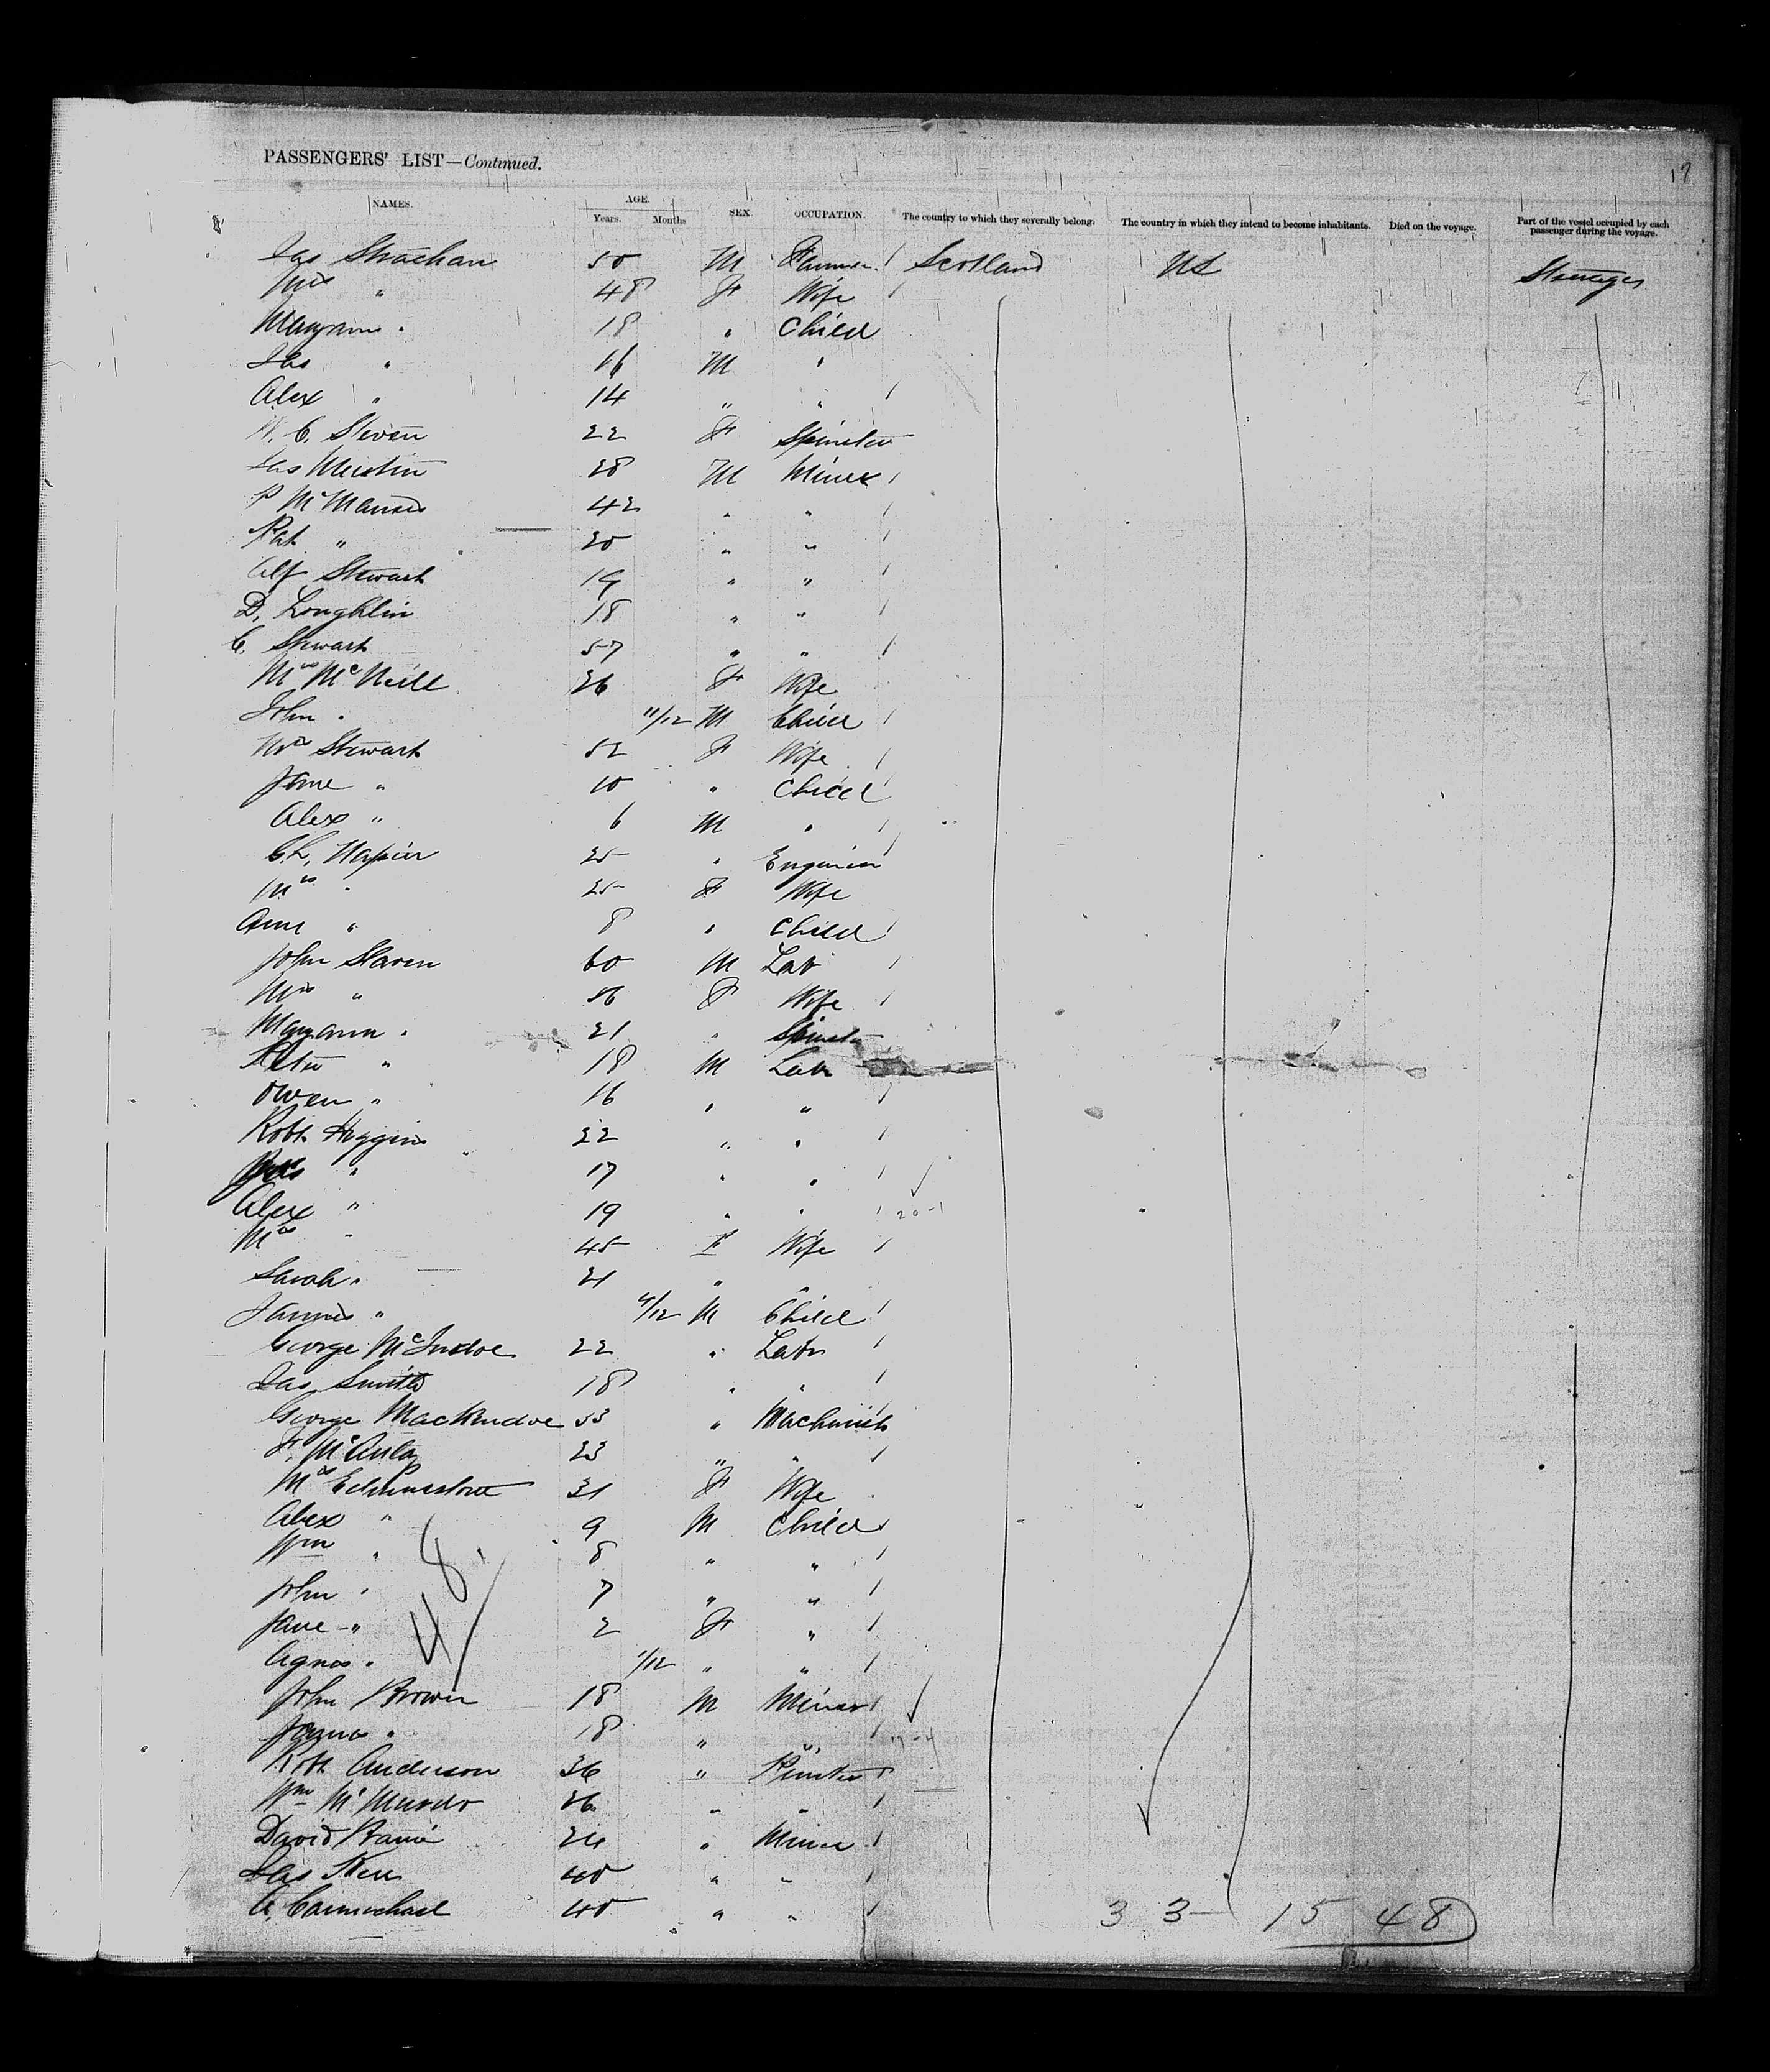 17
PASSENGERS' LIST—Continued.
NAMES. AGE. Years. Months SEX. OCCUPATION. The country to which they severally belong. The country in which they intend to become inhabitants. Died on the voyage. Part of the vessel occupied by each passenger during the voyage.
Jas Strachan 50 M Farmer Scotland US Steerage
Mrs " 48 F Wife
Maryann " 18 " Child
Jas " 16 M "
Alex " 14 " "
Steven 22 F Spinster
Jas 28 M Miner
P McManus 42 " "
Pat " 20 " "
Alf Stewart 19 " "
D. Loughlin 18 " "
C. Stewart 57 " "
Mrs McNeill 26 F Wife
John " 11/12 M Child
Mrs Stewart 52 F Wife
Jane " 10 " Child
Alex " 6 M "
C.L. Napier 25 " Engineer
Mrs " 25 F Wife
Ann " 8 " Child
John Slaven 60 M Lab
Mrs " 56 F Wife
Maryann " 21 " Spinster
Peter " 18 M Labr
Owen " 16 " "
Robt Higgins 22 " "
" 17 " "
Alex " 19 " " 20-1
Mrs " 45 F Wife
Sarah " 21 " "
James " 4/12 M Child
George McIndoe 22 " Labr
Jas Smith 18 " "
George MacKindoe 33 " Machinist
F. McAulay 23 " "
Mrs Edminstone 31 F Wife
Alex " 9 M Child
Wm " 8 " "
John " 7 " "
Jane " 2 F "
Agnes " 1/12 " "
48
John Brown 18 M Miner
James " 18 " " 17-4
Robt Anderson 36 " Printer
Wm McMurdo 26 " "
David 24 " Miner
Jas Kerr 40 " "
A. Carmichael 40 " "
33 - 15 48